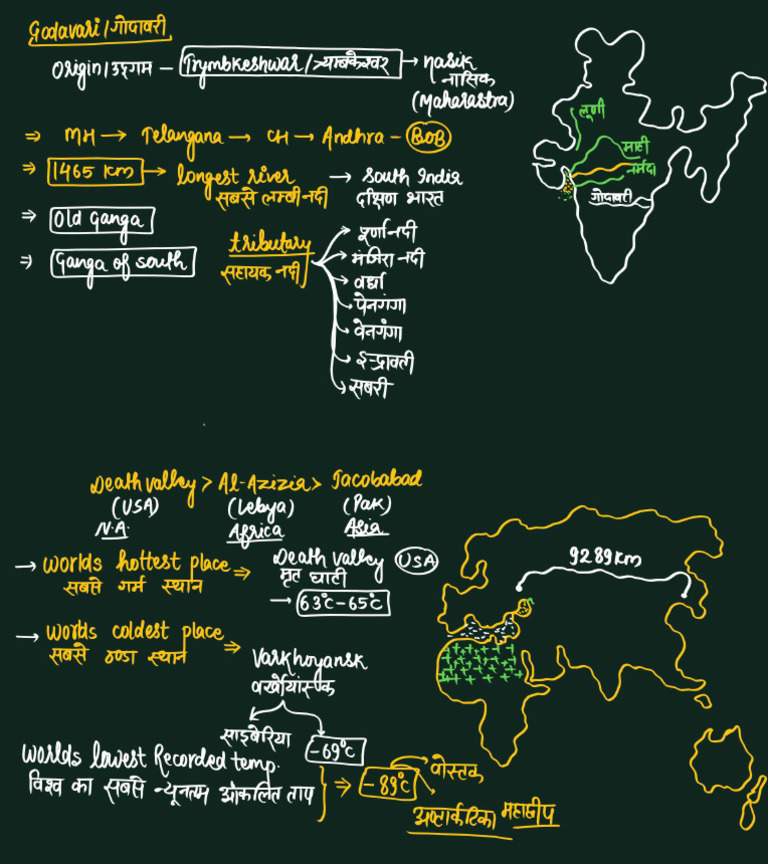 Godavari/गोदावरी
Origin/उद्गम – Trymbkeshwar/त्र्यम्बकेश्वर → Nasik
नासिक
(Maharastra)
⇒ MH → Telangana → CH → Andhra – BOB
⇒ 1465 km → longest river → South India
सबसे लम्बी नदी दक्षिण भारत
⇒ Old Ganga
⇒ Ganga of south
tributary
सहायक नदी
पूर्णा नदी
मंजिरा नदी
वर्धा
पेनगंगा
वेनगंगा
इन्द्रावती
सबरी
लूणी
माही
नर्मदा
गोदावरी
Death valley > Al-Azizia > Jacobabad
(USA) (Lebya) (Pak)
N.A. Africa Asia
→ worlds hottest place ⇒ Death valley (USA)
सबसे गर्म स्थान मृत घाटी
→ 63°c – 65°c
→ worlds coldest place ⇒ Varkhoyansk
सबसे ठण्डा स्थान वर्खोयांस्क
साइबेरिया -69°c
Worlds lowest Recorded temp.
विश्व का सबसे न्यूनतम ओकलित ताप ⇒ -89°c वोस्तक
अण्टार्कटिका महाद्वीप
9289km